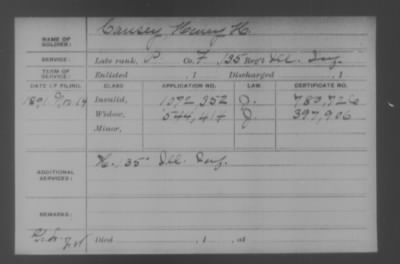 NAME OF SOLDIER: Causey, Henry H.
SERVICE: Late rank, P Co. F, 135 Reg't Ill. Inf.
TERM OF SERVICE: Enlisted , 1 Discharged , 1
DATE OF FILING. CLASS APPLICATION NO. LAW. CERTIFICATE NO.
1891 Invalid, 1,072,352 J. 783,726
Widow, 544,414 J. 397,906
Minor,
ADDITIONAL SERVICES: H. 135 Ill. Inf.
REMARKS:
Died , 1 , at